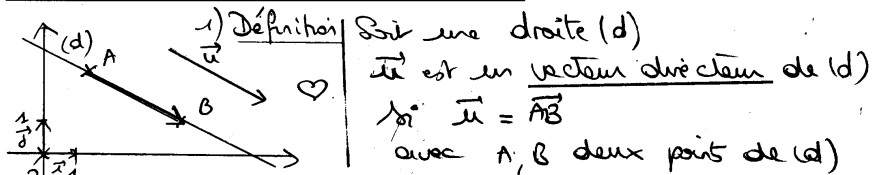 1) Définition
Soit une droite (d)
u⃗ est un vecteur directeur de (d)
si u⃗ = AB⃗
avec A, B deux point de (d)
(d)
A
u⃗
♡
B
1
j⃗
0 i⃗ 1